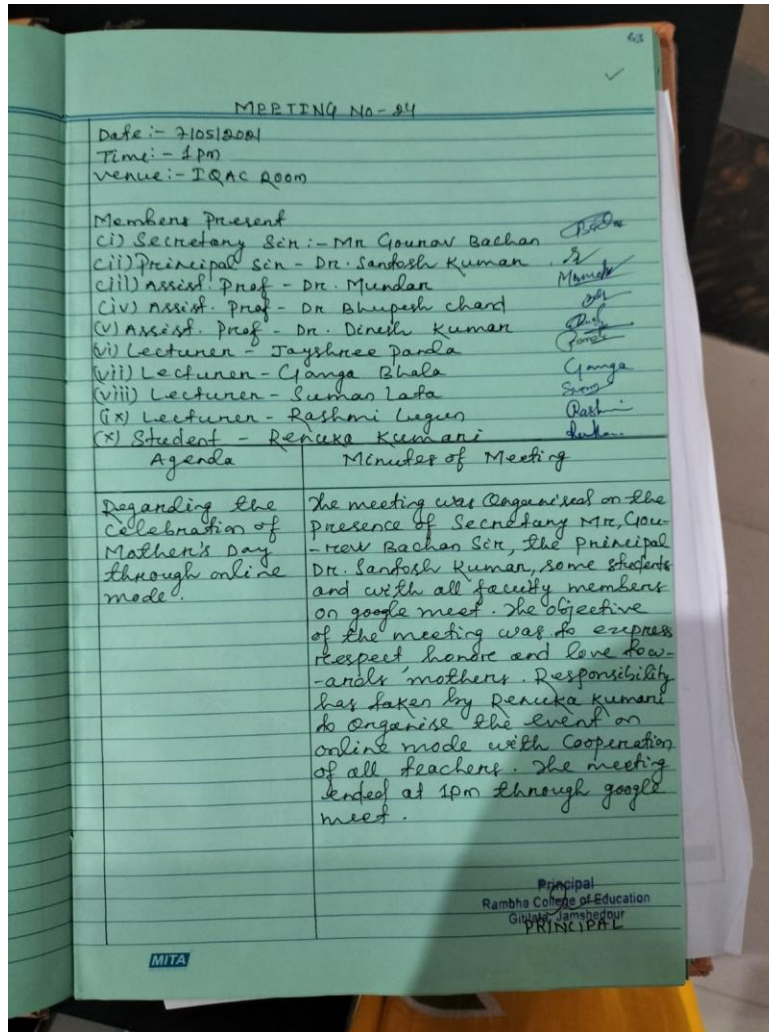 63
MEETING NO-24
Date:- 7/05/2021
Time:- 1pm
Venue:- IQAC Room
Members Present
(i) Secretary Sir:- Mr Gourav Bachan
(ii) Principal Sir - Dr. Santosh Kumar
(iii) Assist. Prof - Dr. Mundar
(iv) Assist. Prof - Dr Bhupesh chand
(v) Assist. Prof - Dr. Dinesh Kumar
(vi) Lecturer - Jayshree Panda
(vii) Lecturer - Ganga Bhola
Ganga
(viii) Lecturer - Suman Lata
Suman
(ix) Lecturer - Rashmi Lugun
Rashmi
(x) Student - Renuka Kumari
Agenda
Regarding the
celebration of
Mother's Day
through online
mode.
Minutes of Meeting
The meeting was Organised on the
presence of Secretary Mr, Gou-
-rav Bachan Sir, the Principal
Dr. Santosh Kumar, some students
and with all faculty members
on google meet. The objective
of the meeting was to express
respect, honor and love tow-
-ards mothers. Responsibility
has taken by Renuka Kumari
to Organise the event on
online mode with Cooperation
of all teachers. The meeting
ended at 1pm through google
meet.
Principal
Rambha College of Education
Gitilata, Jamshedpur
PRINCIPAL
MITA